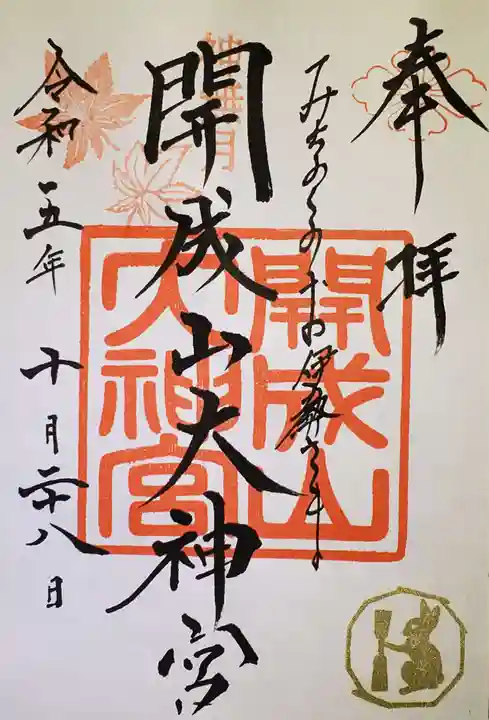 奉拝
みちのくのお伊勢さま
開成山大神宮
開成山
大神宮
神無月
令和五年十月二十八日